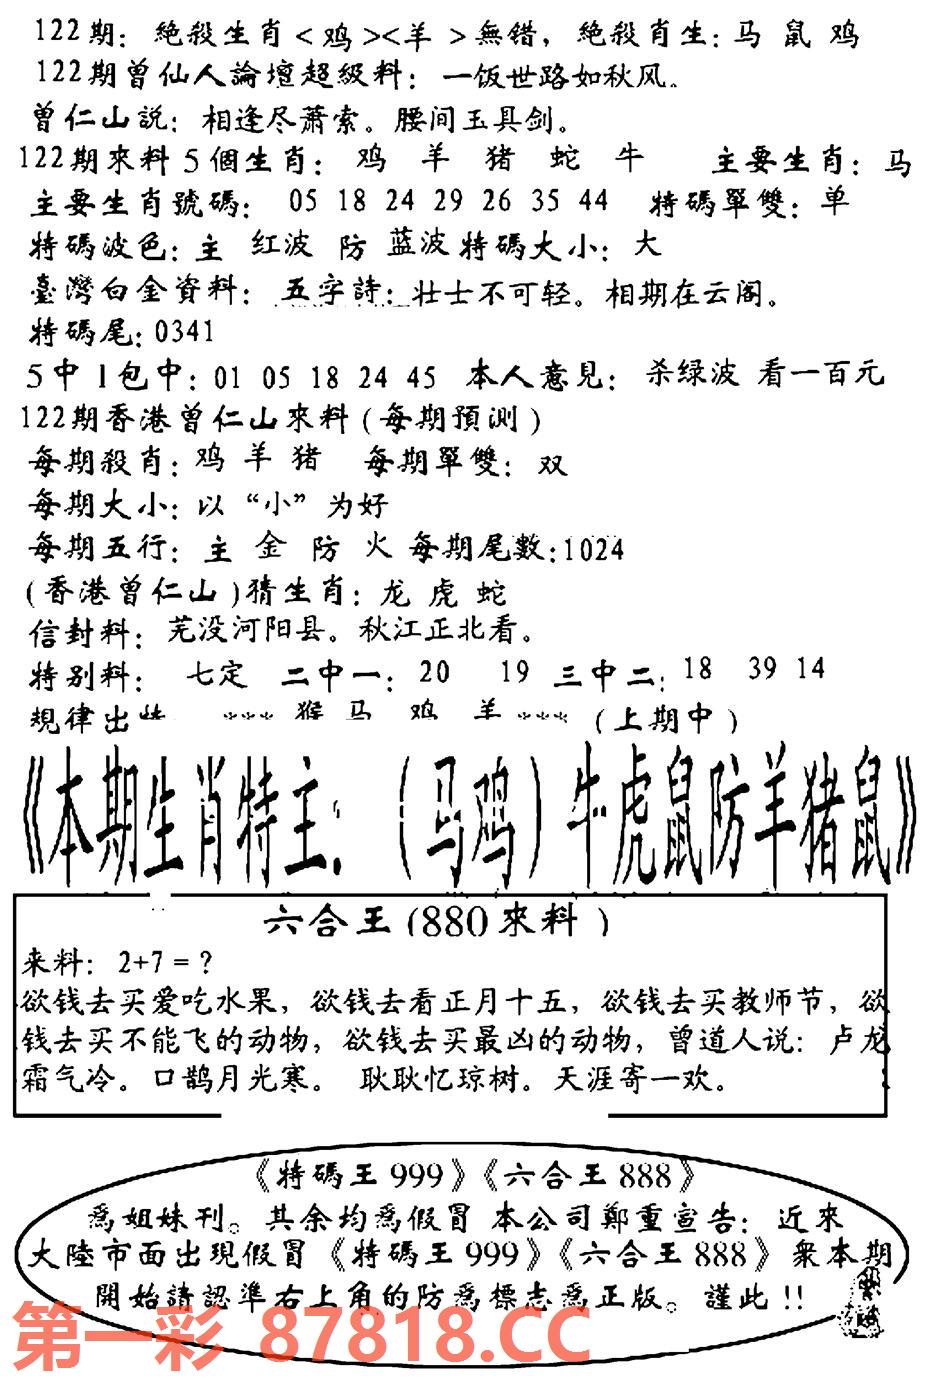 122期: 絶殺生肖<鸡><羊>無错, 絶殺肖生: 马 鼠 鸡
122期曾仙人論壇超級料: 一饭世路如秋风。
曾仁山説: 相逢尽萧索。腰间玉具剑。
122期來料5個生肖: 鸡 羊 猪 蛇 牛 主要生肖: 马
主要生肖號碼: 05 18 24 29 26 35 44 特碼單雙: 单
特碼波色: 主 红波 防 蓝波 特碼大小: 大
臺灣白金資料: 五字詩: 壮士不可轻。相期在云阁。
特碼尾: 0341
5中1包中: 01 05 18 24 45 本人意見: 杀绿波 看一百元
122期香港曾仁山來料(每期預测)
每期殺肖: 鸡 羊 猪 每期單雙: 双
每期大小: 以“小”为好
每期五行: 主 金 防 火 每期尾數:1024
(香港曾仁山)猜生肖: 龙 虎 蛇
信封料: 芜没河阳县。秋江正北看。
特别料: 七定 二中一: 20 19 三中二: 18 39 14
規律出特 *** 猴 马 鸡 羊 *** (上期中)
《本期生肖特主: (马鸡)牛虎鼠防羊猪鼠》
六合王(880來料)
来料: 2+7=?
欲钱去买爱吃水果, 欲钱去看正月十五, 欲钱去买教师节, 欲
钱去买不能飞的动物, 欲钱去买最凶的动物, 曾道人说: 卢龙
霜气冷。口鹊月光寒。 耿耿忆琼树。天涯寄一欢。
《特碼王999》《六合王888》
爲姐妹刊。其余均爲假冒 本公司鄭重宣告: 近來
大陸市面出現假冒《特碼王999》《六合王888》衆本期
開始請認準右上角的防爲標志爲正版。謹此!!
第一彩 87818.CC